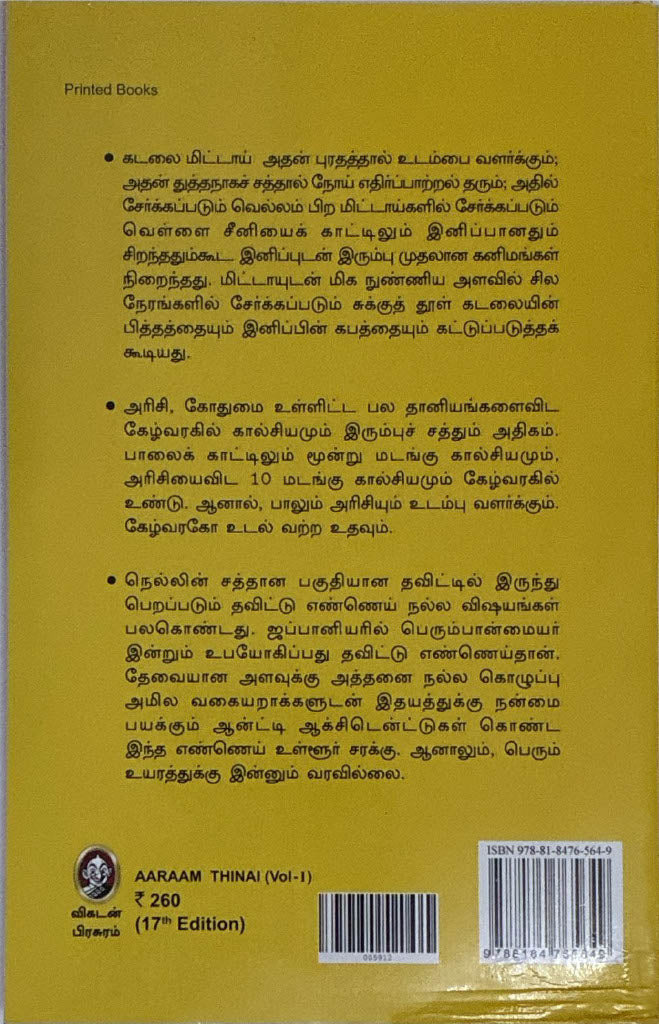 Printed Books
● கடலை மிட்டாய் அதன் புரதத்தால் உடம்பை வளர்க்கும்;
அதன் துத்தநாகச் சத்தால் நோய் எதிர்ப்பாற்றல் தரும்; அதில்
சேர்க்கப்படும் வெல்லம் பிற மிட்டாய்களில் சேர்க்கப்படும்
வெள்ளை சீனியைக் காட்டிலும் இனிப்பானதும்
சிறந்ததும்கூட. இனிப்புடன் இரும்பு முதலான கனிமங்கள்
நிறைந்தது. மிட்டாயுடன் மிக நுண்ணிய அளவில் சில
நேரங்களில் சேர்க்கப்படும் சுக்குத் தூள் கடலையின்
பித்தத்தையும் இனிப்பின் கபத்தையும் கட்டுப்படுத்தக்
கூடியது.
● அரிசி, கோதுமை உள்ளிட்ட பல தானியங்களைவிட
கேழ்வரகில் கால்சியமும் இரும்புச் சத்தும் அதிகம்.
பாலைக் காட்டிலும் மூன்று மடங்கு கால்சியமும்,
அரிசியைவிட 10 மடங்கு கால்சியமும் கேழ்வரகில்
உண்டு. ஆனால், பாலும் அரிசியும் உடம்பு வளர்க்கும்.
கேழ்வரகோ உடல் வற்ற உதவும்.
● நெல்லின் சத்தான பகுதியான தவிட்டில் இருந்து
பெறப்படும் தவிட்டு எண்ணெய் நல்ல விஷயங்கள்
பலகொண்டது. ஜப்பானியரில் பெரும்பான்மையர்
இன்றும் உபயோகிப்பது தவிட்டு எண்ணெய்தான்.
தேவையான அளவுக்கு அத்தனை நல்ல கொழுப்பு
அமில வகையறாக்களுடன் இதயத்துக்கு நன்மை
பயக்கும் ஆன்ட்டி ஆக்சிடென்ட்டுகள் கொண்ட
இந்த எண்ணெய் உள்ளூர் சரக்கு. ஆனாலும், பெரும்
உயரத்துக்கு இன்னும் வரவில்லை.
விகடன்
பிரசுரம்
AARAAM THINAI (Vol-1)
₹ 260
(17th Edition)
005912
ISBN 978-81-8476-564-9